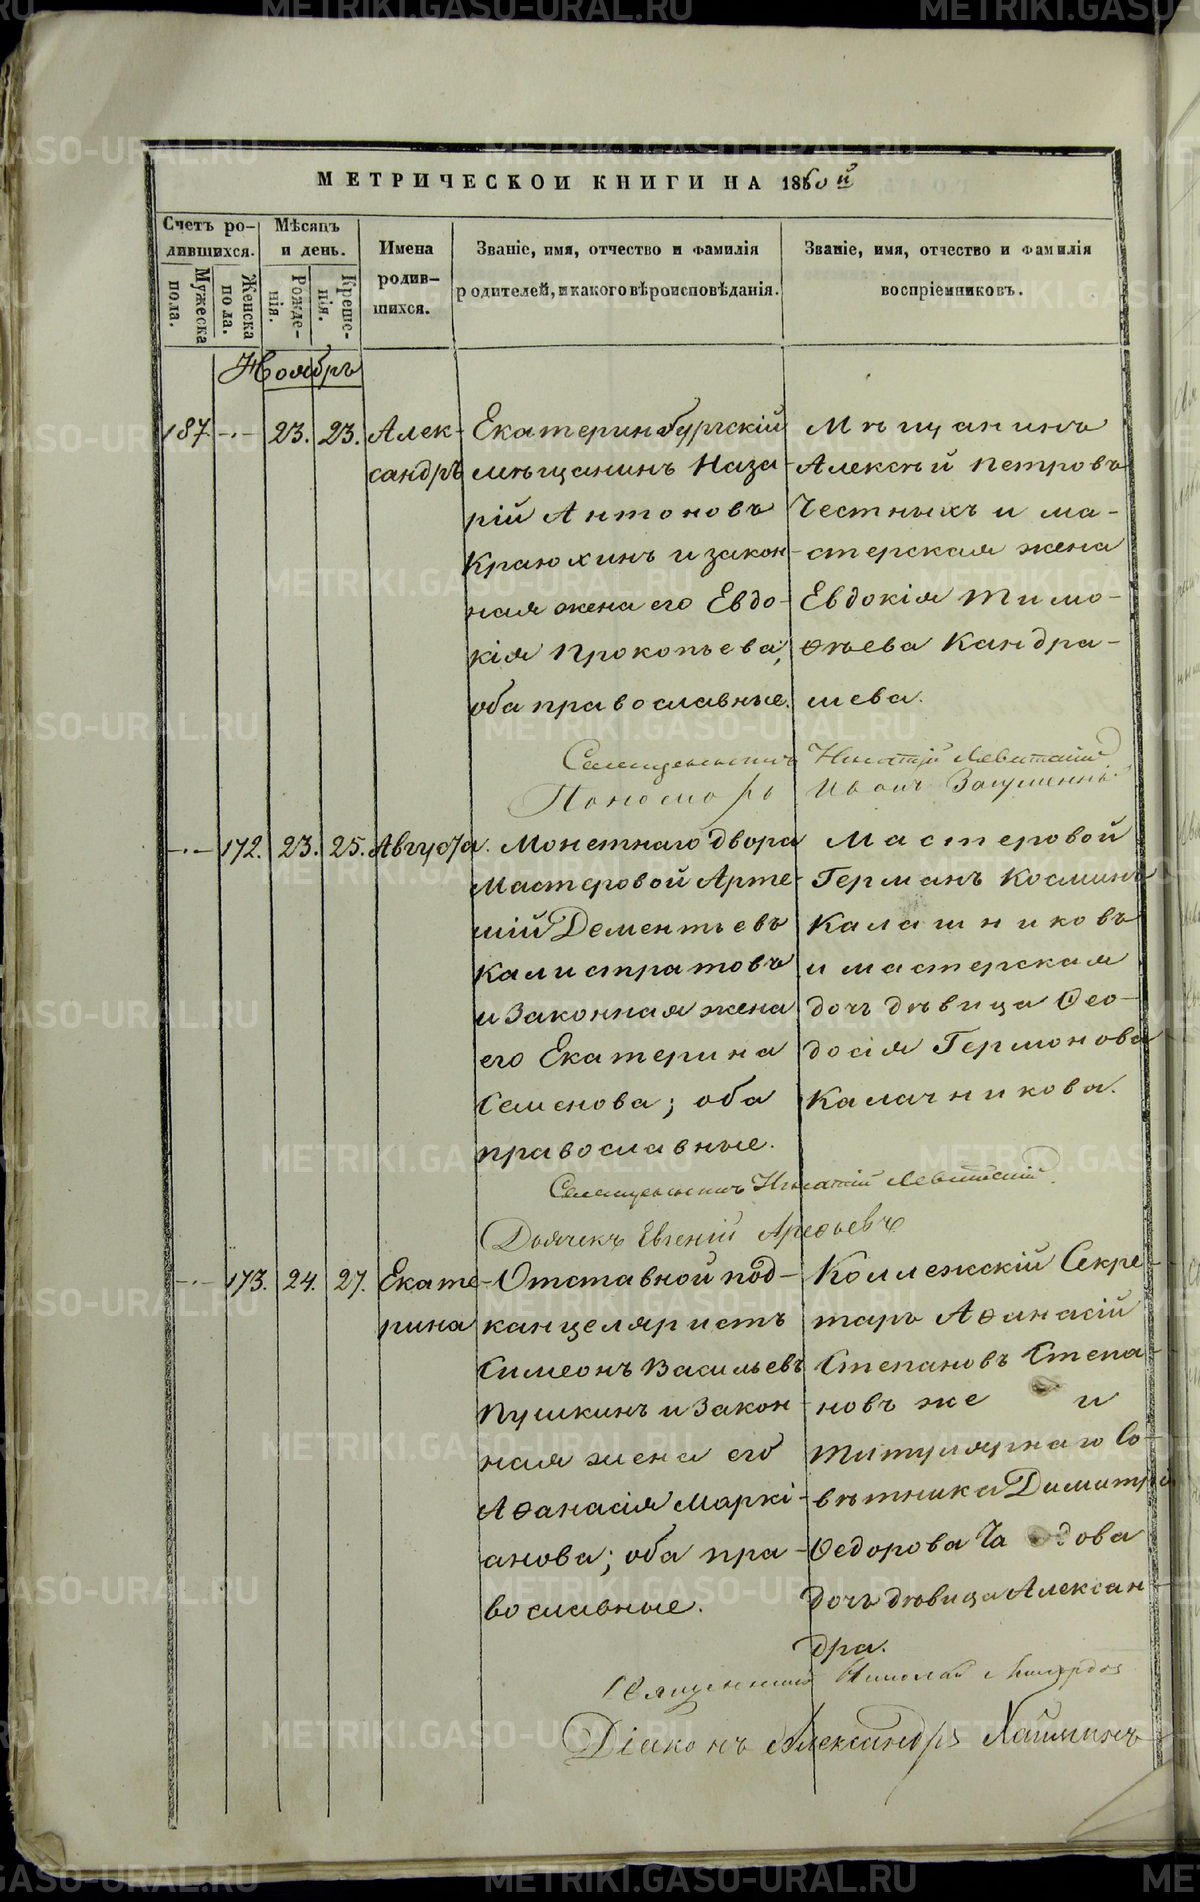 МЕТРИЧЕСКОЙ КНИГИ НА 1860й
Счетъ ро-
дившихся.
Мужеска
пола.
Женска
пола.
Мѣсяцъ
и день.
Рожде-
нія.
Креще-
нія.
Имена
родив-
шихся.
Званіе, имя, отчество и фамилія
родителей, и какого вѣроисповѣданія.
Званіе, имя, отчество и фамилія
воспріемниковъ.
Ноябрь
187. -.- 23. 23. Алек-
сандръ
Екатеринбургскій
мѣщанинъ Наза-
рій Антоновъ
Краюхинъ и закон-
ная жена его Евдо-
кія Прокопьева;
оба православные.
Мѣщанинъ
Алексѣй Петровъ
Честныхъ и ма-
стерская жена
Евдокія Тимо-
ѳѣева Кандра-
шева.
Священникъ Игнатій Левитскій
Пономарь Иванъ
-.- 172. 23. 25. Августа.
Монетнаго двора
Мастеровой Арте-
мій Дементьевъ
Калистратовъ
и Законная жена
его Екатерина
Семенова; оба
православные.
Мастеровой
Германъ Косминъ
Калашниковъ
и мастерская
дочь дѣвица Ѳео-
досія Германова
Калачникова.
Священникъ Игнатій Левитскій
Дьячекъ Евгеній Арефьевъ
-.- 173. 24. 27. Екате-
рина
Отставной под-
канцеляристъ
Симеонъ Васильевъ
Пушкинъ и Закон-
ная жена его
Аѳанасія Маркі-
анова; оба пра-
вославные.
Коллежскій Секре-
тарь Аѳанасій
Степановъ Степа-
новъ же и
Титулярнаго Со-
вѣтника Димитрі
Ѳедорова
дочь дѣвица Алексан-
дра.
Священникъ Николай
Діаконъ Александръ
METRIKI.GASO-URAL.RU